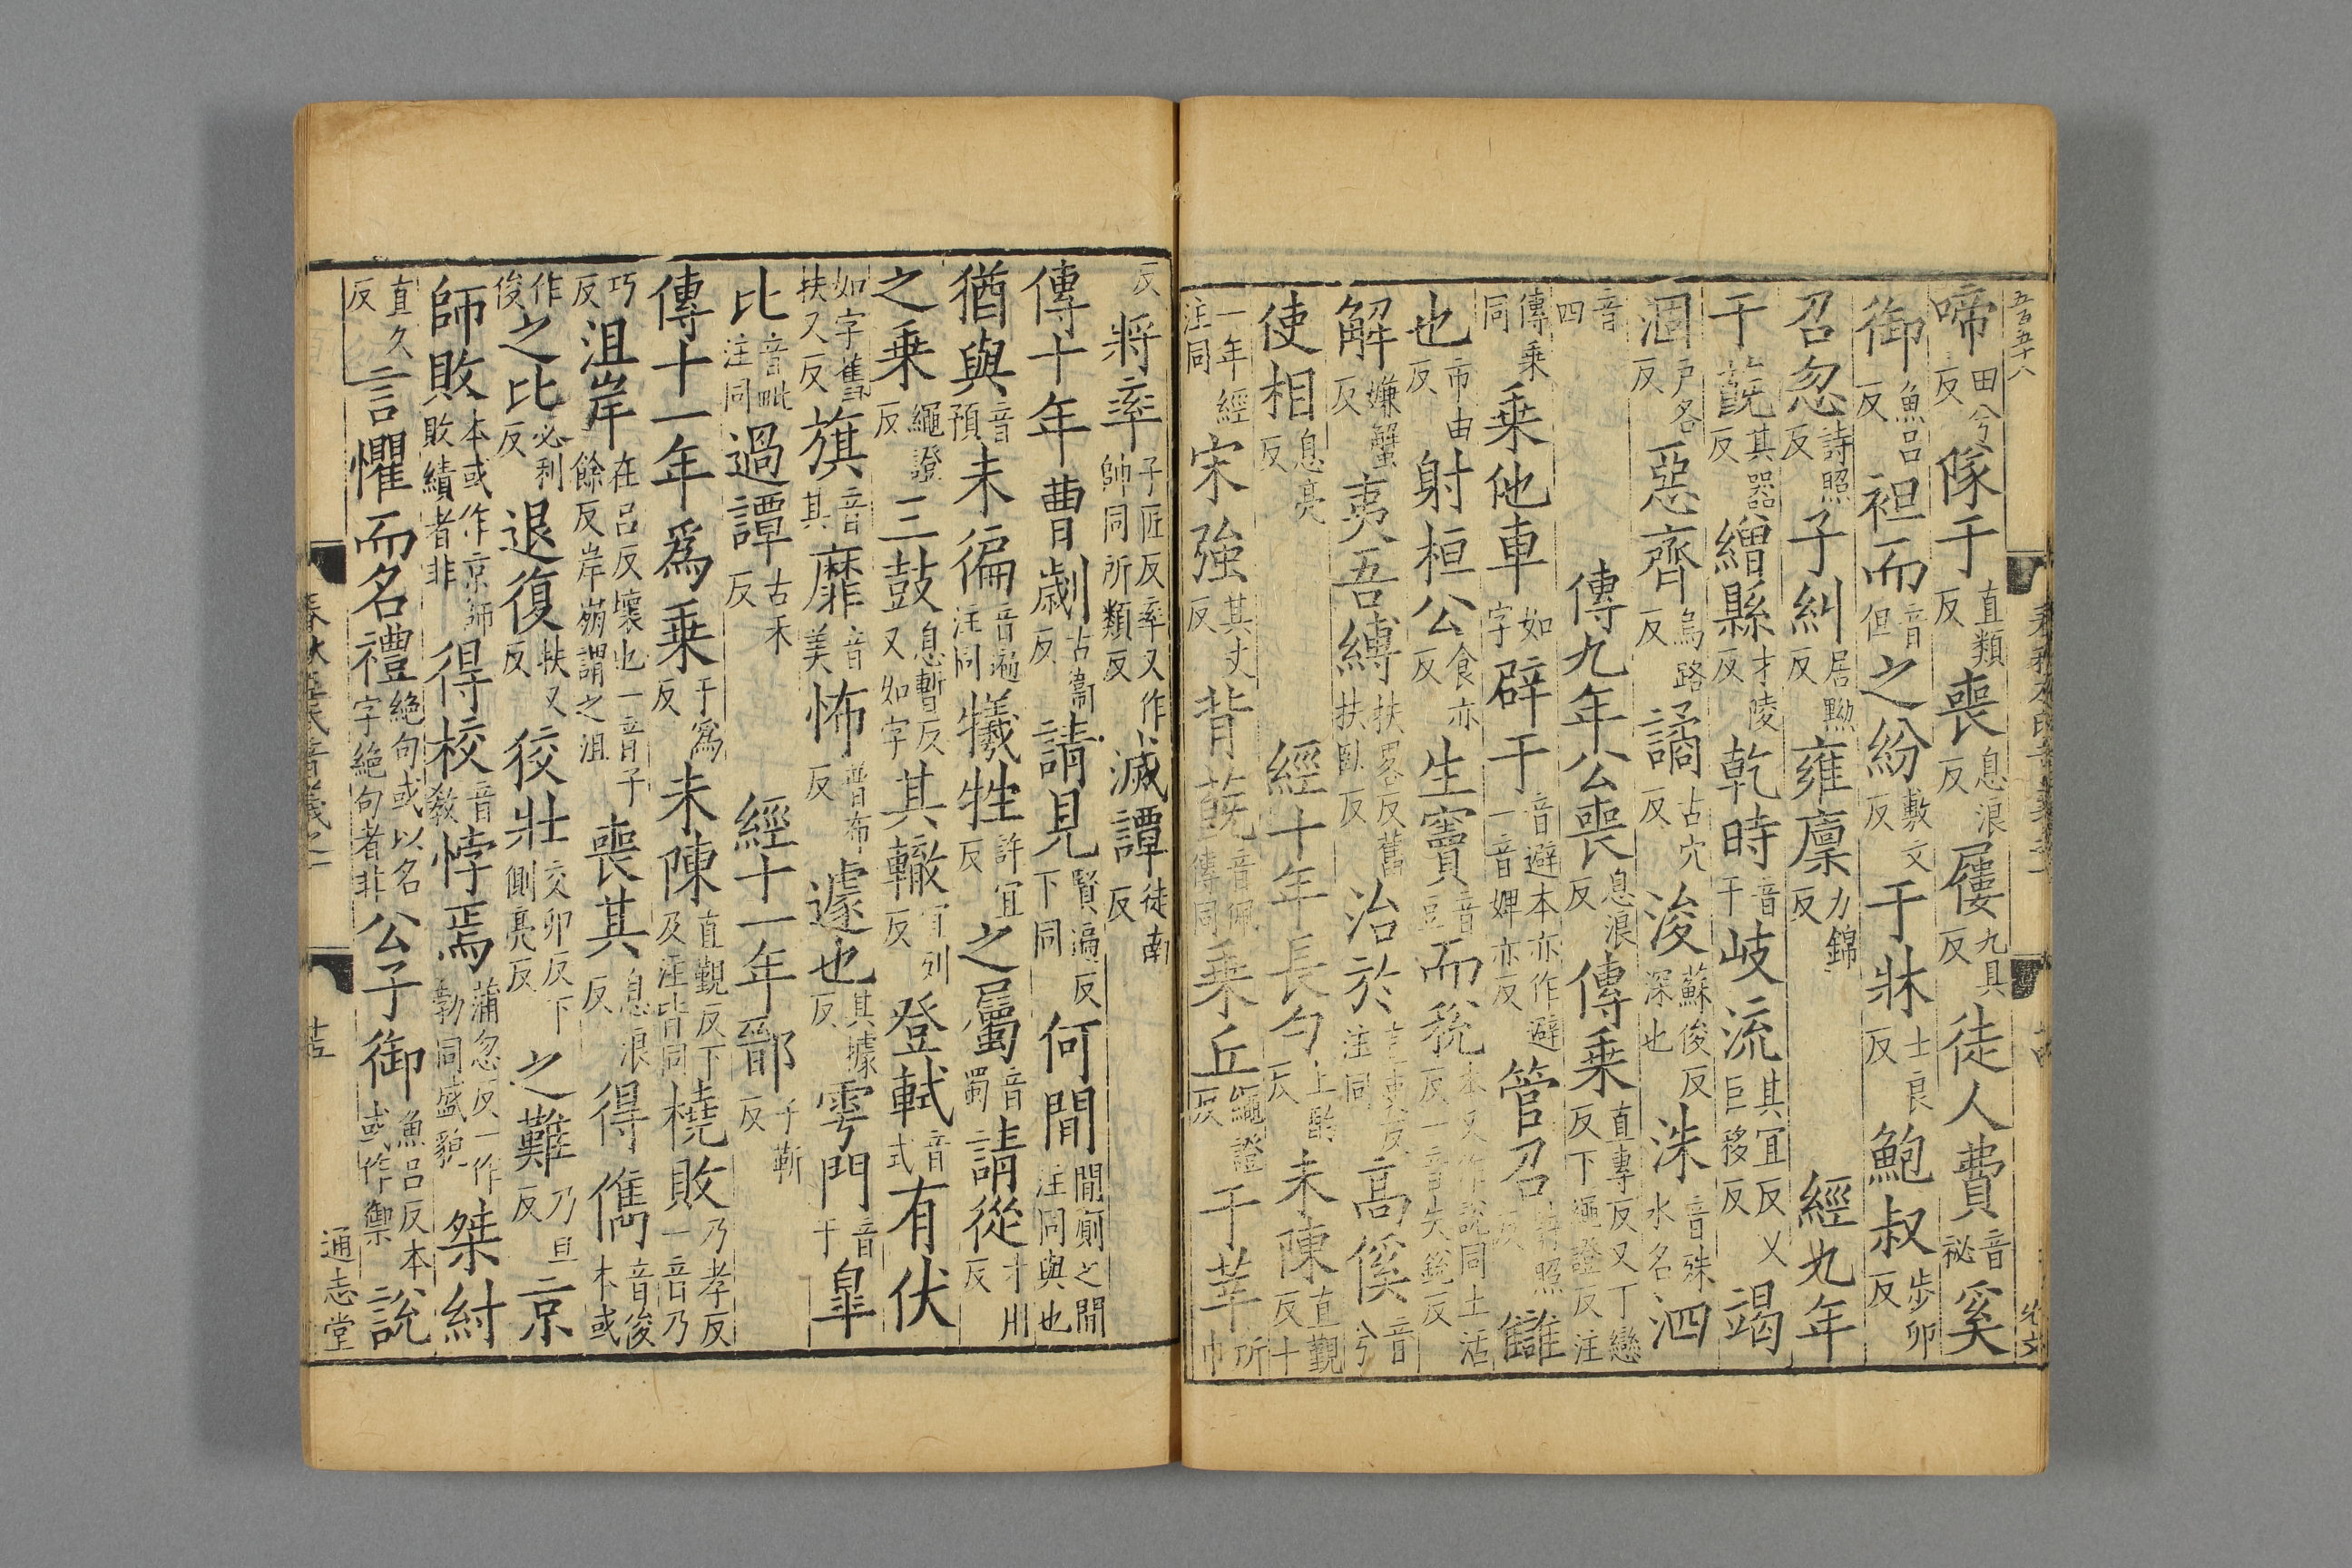 五百五十八
啼田兮反隊于直類反喪息浪反屨九具反徒人費音祕奚
御魚呂反袒而音但之紛敷文反于牀士良反鮑叔步卯反
召忽詩照反子糾居黝反雍廩力錦反 經九年
干蔇其器反繒縣才陵反乾時音干岐流其宜反又巨移反竭
涸戶各反惡齊烏路反譎古穴反浚蘇俊反深也洙音殊水名泗
音四 傳九年公喪息浪反傳乘直專反又丁戀反下繩證反注
傳乘同乘他車如字辟干音避本亦作避一音婢亦反管召詩照反讎
也市由反射桓公食亦反生竇音豆而稅本又作說同土活反一音失銳反
解嫌蟹反夷吾縛扶臥反治於直吏反注同高傒音兮
使相息亮反 經十年長勺上酌反未陳直覲反十
一年經注同宋強其丈反背蔇音佩傳同乘丘繩證反于莘所巾
反將率子匠反率又作帥同所類反滅譚徒南反
傳十年曹劌古衞反請見賢遍反下同何間間廁之間注同與也
猶與音預未徧音遍注同犧牲許宜反之屬音蜀請從才用反
之乘繩證反三鼓息暫反又如字其轍直列反登軾音式有伏
如字舊扶又反旗音其靡音美怖普布反遽也其據反雩門音于皐
比音毗注同過譚古禾反 經十一年鄑子斯反
傳十一年爲乘于爲反未陳直覲反下及注皆同橈敗乃孝反一音乃
巧反沮岸在呂反壞也一音子餘反岸崩謂之沮喪其息浪反得儁音俊本或
作俊之比必利反退復扶又反狡壯交卯反下側亮反之難乃旦反京
師敗本或作京師敗績者非得校音敎悖焉蒲忽反一作勃同盛貌桀紂
直久反言懼而名禮絕句或以名字絕句者非公子御魚呂反本或作禦說
春秋左氏音義之一
十五
通志堂